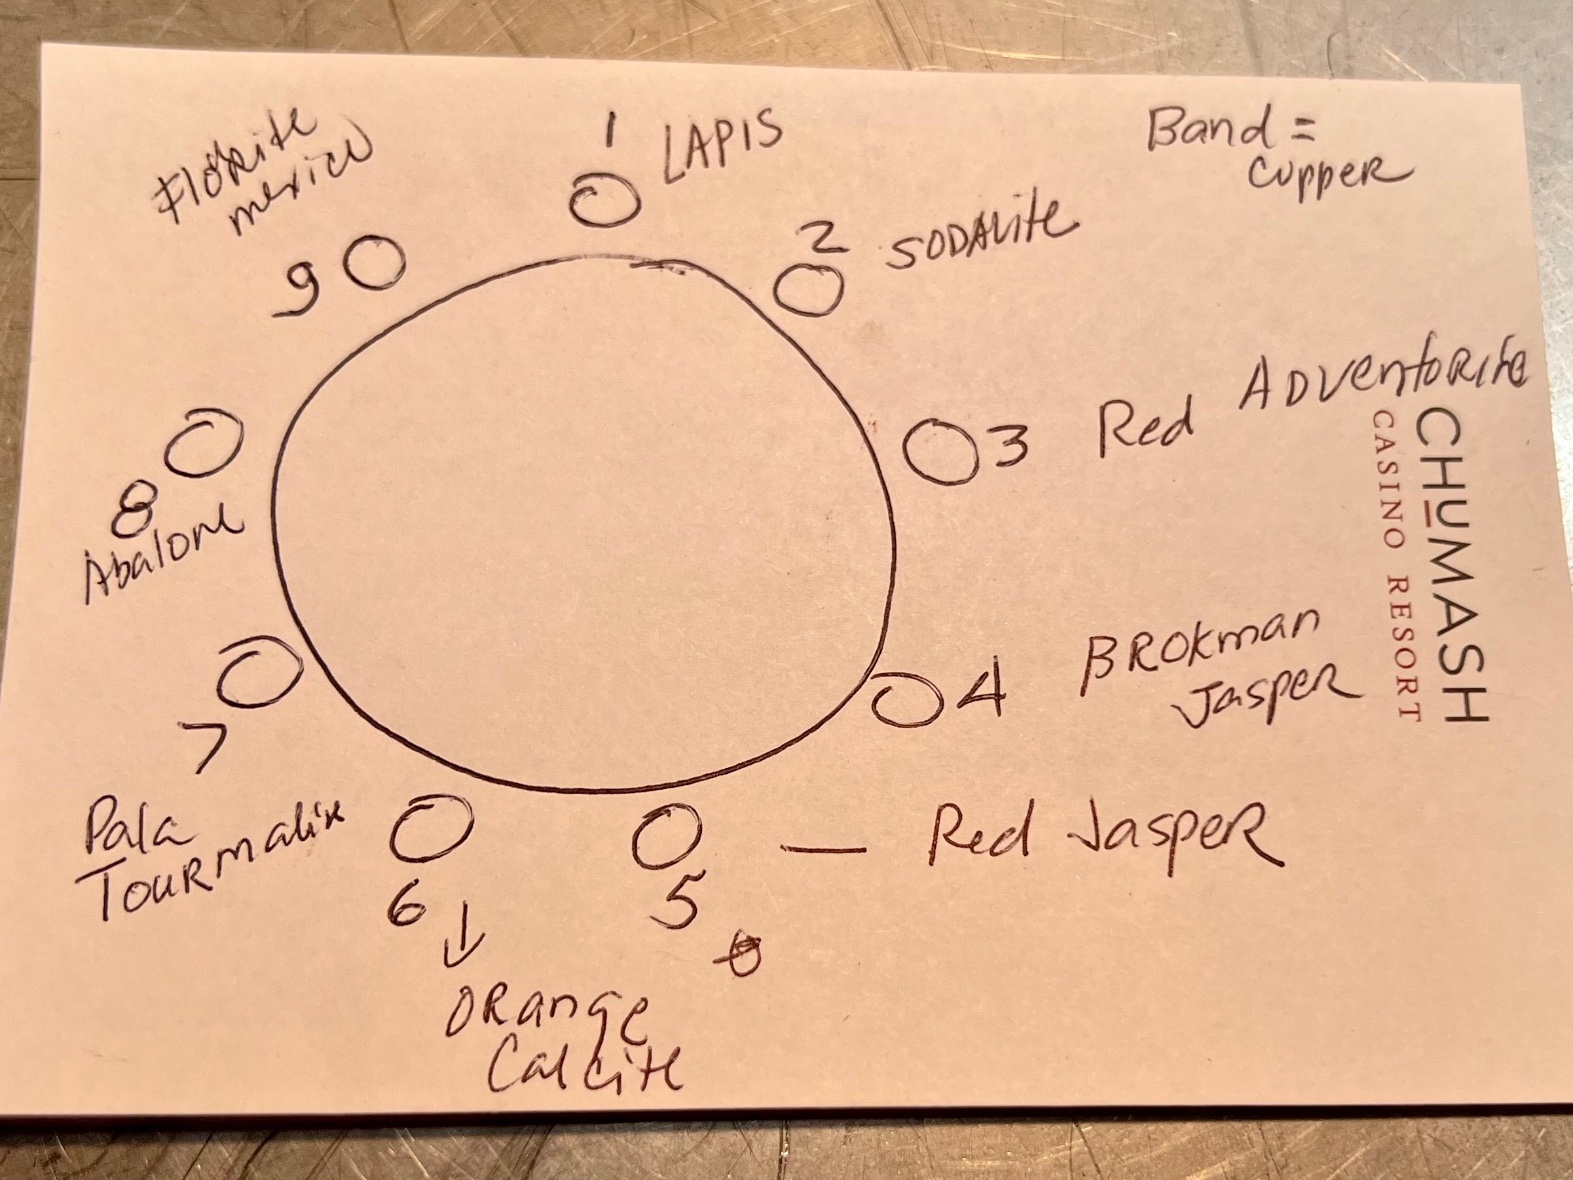 1 LAPIS
Band =
Cupper
2 SODALite
3 Red ADVentoRite
4 BROKman
Jasper
5 — Red Jasper
6
ORange
Calcite
7
Pala
TOURmaline
8
Abalone
9
Florite
mexico
CHUMASH
CASINO RESORT